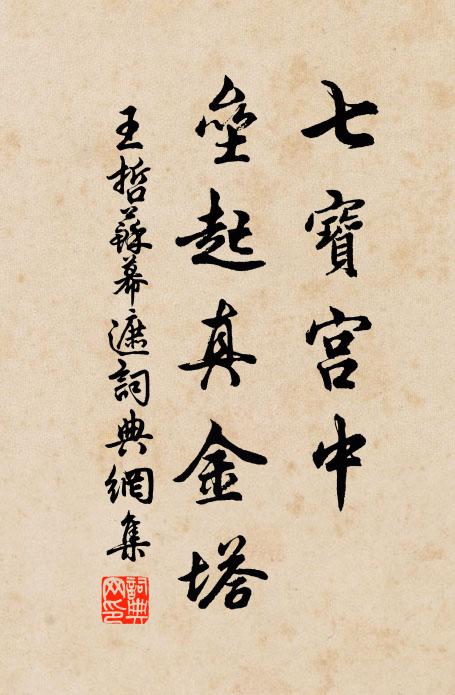 七寶宮中
垒起真金塔
王哲蘇幕遮詞典網集
詞典网印